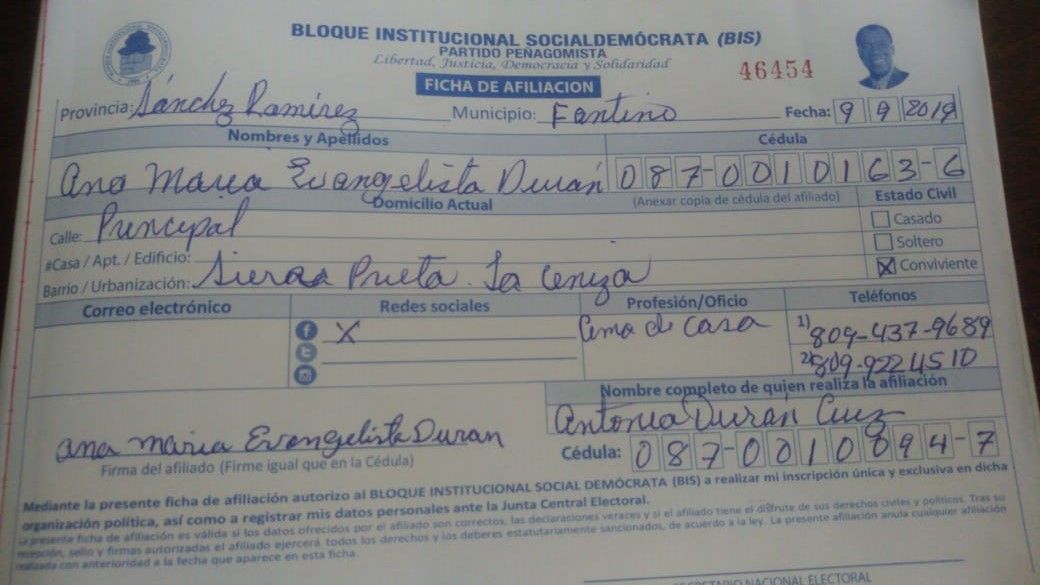 BLOQUE INSTITUCIONAL SOCIALDEMÓCRATA (BIS)
PARTIDO PEÑAGOMISTA
Libertad, Justicia, Democracia y Solidaridad
46454
FICHA DE AFILIACION
Provincia: Sánchez Ramírez Municipio: Fantino Fecha: 9 9 2019
Nombres y Apellidos Cédula
Ana Maria Evangelista Durán 087-0010163-6
Domicilio Actual (Anexar copia de cédula del afiliado) Estado Civil
Calle: Principal Casado
Soltero
#Casa / Apt. / Edificio: X Conviviente
Barrio / Urbanización: Sierra Prieta. La Ceniza
Correo electrónico Redes sociales Profesión/Oficio Teléfonos
X Ama de casa 1) 809-437-9689
2) 809-922 4510
Nombre completo de quien realiza la afiliación
Antonia Durán Cruz
ana maria Evangelista Duran Cédula: 087-0010894-7
Firma del afiliado (Firme igual que en la Cédula)
Mediante la presente ficha de afiliación autorizo al BLOQUE INSTITUCIONAL SOCIAL DEMÓCRATA (BIS) a realizar mi inscripción única y exclusiva en dicha
organización política, así como a registrar mis datos personales ante la Junta Central Electoral.
La presente ficha de afiliación es válida si los datos ofrecidos por el afiliado son correctos, las declaraciones veraces y si el afiliado tiene el disfrute de sus derechos civiles y políticos. Tras su
recepción, sello y firmas autorizadas el afiliado ejercerá todos los derechos y los deberes estatutariamente sancionados, de acuerdo a la ley. La presente afiliación anula cualquier afiliación
realizada con anterioridad a la fecha que aparece en esta ficha.
SECRETARIO NACIONAL ELECTORAL